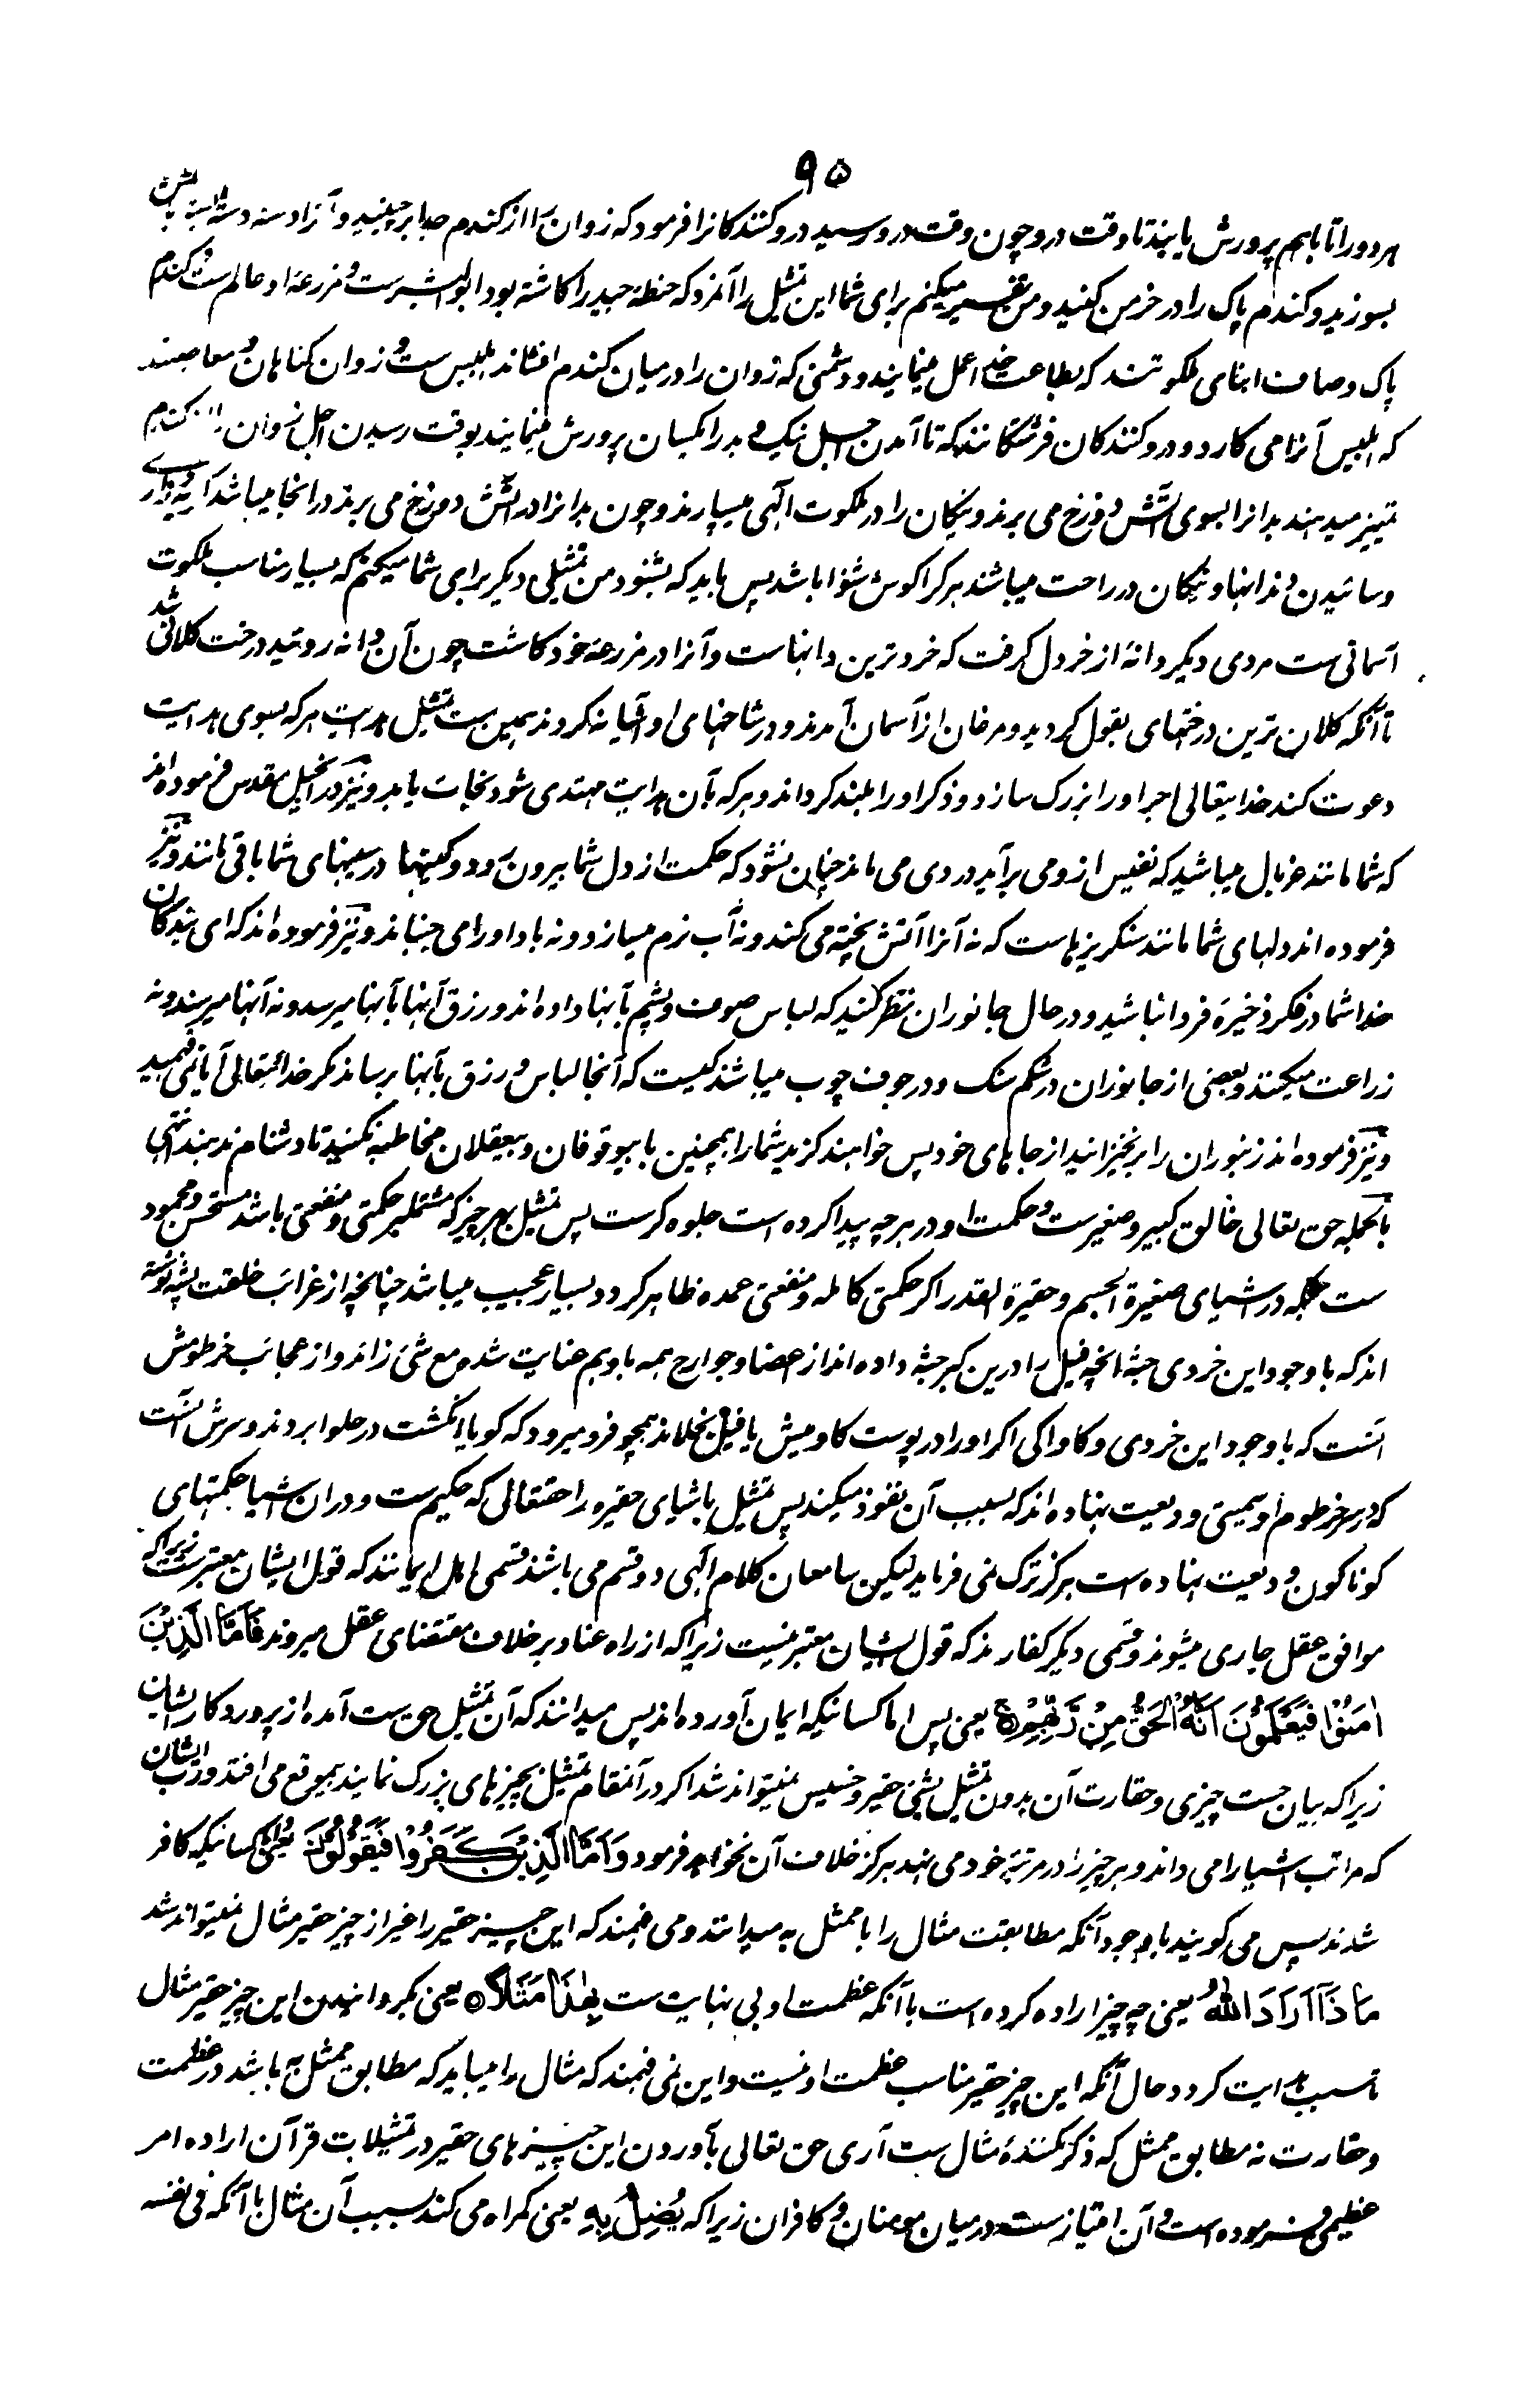 ۹۵
هر دو را تا باهم پرورش یابند تا وقت درو چون وقت درو رسید درو کنندکانرا فرمود که زوان را از کندم جدا برچینید و آنرا دسته دسته بسته باتش
بسوزید و کندم پاک را در خرمن کنید و من تفسیر میکنم برای شما این تمثیل را آنمرد که حنطهٔ جید را کاشته بود ابو البشر ست و مزرعهٔ او عالم ست و کندم
پاک و صاف ابنای ملکوتند که بطاعت خدا عمل مینمایند و دشمنی که زوان را در میان کندم افشاند ابلیس ست و زوان کناهان و معاصیند
که ابلیس آنرا می کارد و درو کنندکان فرشتکانند که تا آمدن اجل نیک و بد را یکسان پرورش مینمایند بوقت رسیدن اجل زوان را از کندم
تمییز میدهند بدانرا بسوی آتش دوزخ می برند و نیکان را در ملکوت الهی میسپارند و چون بدانرا در آتش دوزخ می برند در انجا میباشد کریه و زاری
و سائیدن دندانها و نیکان در راحت میباشند هر کرا کوش شنوا باشد پس باید که بشنود من تمثیلی دیکر برای شما میکنم که بسیار مناسب ملکوت
آسمانی ست مردی دیکر دانهٔ از خردل کرفت که خردترین دانهاست و آنرا در مزرعهٔ خود کاشت چون آن دانه روئید درخت کلانی شد
تا آنکه کلان ترین درختهای بقول کردید و مرغان از آسمان آمدند و در شاخهای او آشیانه کردند همین ست تمثیل هدایت هر که بسوی هدایت
دعوت کند خدایتعالی اجر او را بزرک سازد و ذکر او را بلند کرداند و هر که بآن هدایت مهتدی شود نجات یابد و نیز در انجیل مقدس فرموده اند
که شما مانند غربال میباشید که نفیس ازو می برآید و ردی می ماند چنان نشود که حکمت از دل شما بیرون رود و کینها در سینهای شما باقی مانند و نیز
فرموده اند دلهای شما مانند سنکریزها ست که نه آنرا آتش پخته می کند و نه آب نرم میسازد و نه باد او را می جنباند و نیز فرموده اند که ای بندکان
خدا شما در فکر ذخیرهٔ فردا نباشید و در حال جانوران نظر کنید که لباس صوف و پشم بآنها داده اند و رزق آنها بآنها میرسد و نه آنها میرسند و نه
زراعت میکنند و بعضی از جانوران در شکم سنک و در جوف چوب میباشند کیست که آنجا لباس و رزق بآنها برساند مکر خدایتعالی آیا نمی فهمید
و نیز فرموده اند زنبوران را برنخیزانید از جاهای خود پس خواهند کزید شما را همچنین با بیوقوفان و بیعقلان مخاطبه نکنید تا دشنام ندهند انتهی
بالجمله حق تعالی خالق کبیر و صغیر ست و حکمت او در هر چه پیدا کرده است جلوه کر ست پس تمثیل بهر چیز که مشتمل بر حکمتی و منفعتی باشد مستحسن و محمود
ست بلکه در اشیای صغیرة الجسم و حقیرة القدر اکر حکمتی کامله و منفعتی عمده ظاهر کردد بسیار عجیب میباشد چنانچه از غرائب خلقت پشه نوشته
اند که با وجود این خردی جثه انچه فیل را درین کبر جثه داده اند از اعضا و جوارح همه باو هم عنایت شده مع شئ زائد و از عجائب خرطومش
انست که با وجود این خردی و کاواکی اکر او را در پوست کاومیش یا فیل بخلاند همچو فرو میرود که کویا انکشت در حلوا بردند و سرش آنست
که در سر خرطوم او سمیتی ودیعت نهاده اند که بسبب آن نفوذ میکند پس تمثیل باشیای حقیره را حقتعالی که حکیم ست و در ان اشیا حکمتهای
کوناکون ودیعت نهاده است هرکز ترک نمی فرماید لیکن سامعان کلام الهی دو قسم می باشند قسمی اهل ایمانند که قول ایشان معتبر ست زیرا که
موافق عقل جاری میشوند و قسمی دیکر کفار ند که قول ایشان معتبر نیست زیرا که از راه عناد بر خلاف مقتضای عقل میروند فَأَمَّا الَّذِيْنَ
اٰمَنُوْا فَيَعْلَمُوْنَ اَنَّهُ الْحَقُّ مِنْ رَّبِّهِمْ یعنی پس اما کسانیکه ایمان آورده اند پس میدانند که آن تمثیل حق ست آمده از پروردکار ایشان
زیرا که بیان خست چیزی و حقارت آن بدون تمثیل بشئ حقیر و خسیس نمیتواند شد اکر در آنمقام تمثیل بچیزهای بزرک نمایند بیموقع می افتد و رب ایشان
که مراتب اشیا را می داند و هر چیز را در مرتبهٔ خود می نهد هرکز خلاف آن نخواهد فرمود وَاَمَّا الَّذِيْنَ كَفَرُوْا فَيَقُوْلُوْنَ یعنی کسانیکه کافر
شدند پس می کویند باوجود آنکه مطابقت مثال را با ممثل به میدانند و می فهمند که این چیز حقیر را غیر از چیز حقیر مثال نمیتواند شد
مَاذَا اَرَادَ اللّٰهُ یعنی چه چیز اراده کرده است با آنکه عظمت او بی نهایت ست بِهٰذَا مَثَلًا یعنی بکردانیدن این چیز حقیر مثال
تا سبب هدایت کردد حال آنکه این چیز حقیر مناسب عظمت او نیست و این نمی فهمند که مثال را میباید که مطابق ممثل به باشد در عظمت
و حقارت نه مطابق ممثل که ذکر کنندهٔ مثال ست آری حق تعالی بآوردن این چیزهای حقیر در تمثیلات قرآن اراده امر
عظیمی فرموده است و آن امتیاز ست در میان مومنان و کافران زیرا که يُضِلُّ بِهٖ یعنی کمراه می کند بسبب آن مثال با آنکه فی نفسه